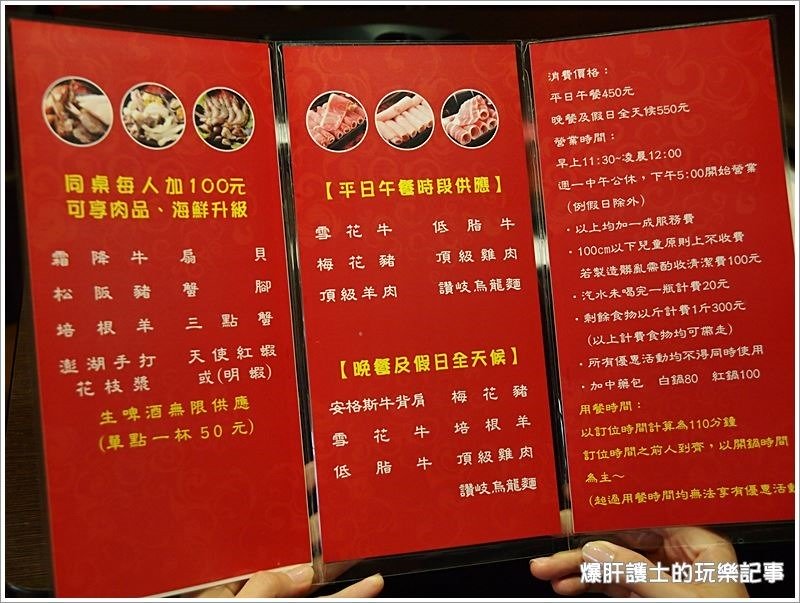 同桌每人加100元
可享肉品、海鮮升級
霜降牛 扇貝
松阪豬 蟹腳
培根羊 三點蟹
澎湖手打花枝漿 天使紅蝦或(明蝦)
生啤酒無限供應
(單點一杯50元)
【平日午餐時段供應】
雪花牛 低脂牛
梅花豬 頂級雞肉
頂級羊肉 讚岐烏龍麵
【晚餐及假日全天候】
安格斯牛背肩 梅花豬
雪花牛 培根羊
低脂牛 頂級雞肉
讚岐烏龍麵
消費價格：
平日午餐450元
晚餐及假日全天候550元
營業時間：
早上11:30~凌晨12:00
週一中午公休，下午5:00開始營業
(例假日除外)
·以上均加一成服務費
·100cm以下兒童原則上不收費
若製造髒亂需酌收清潔費100元
·汽水未喝完一瓶計費20元
·剩餘食物以斤計費1斤300元
(以上計費食物均可帶走)
·所有優惠活動均不得同時使用
·加中藥包 白鍋80 紅鍋100
用餐時間：
以訂位時間計算為110分鐘
訂位時間之前人到齊，以開鍋時間
為主~
(超過用餐時間均無法享有優惠活動
爆肝護士的玩樂記事